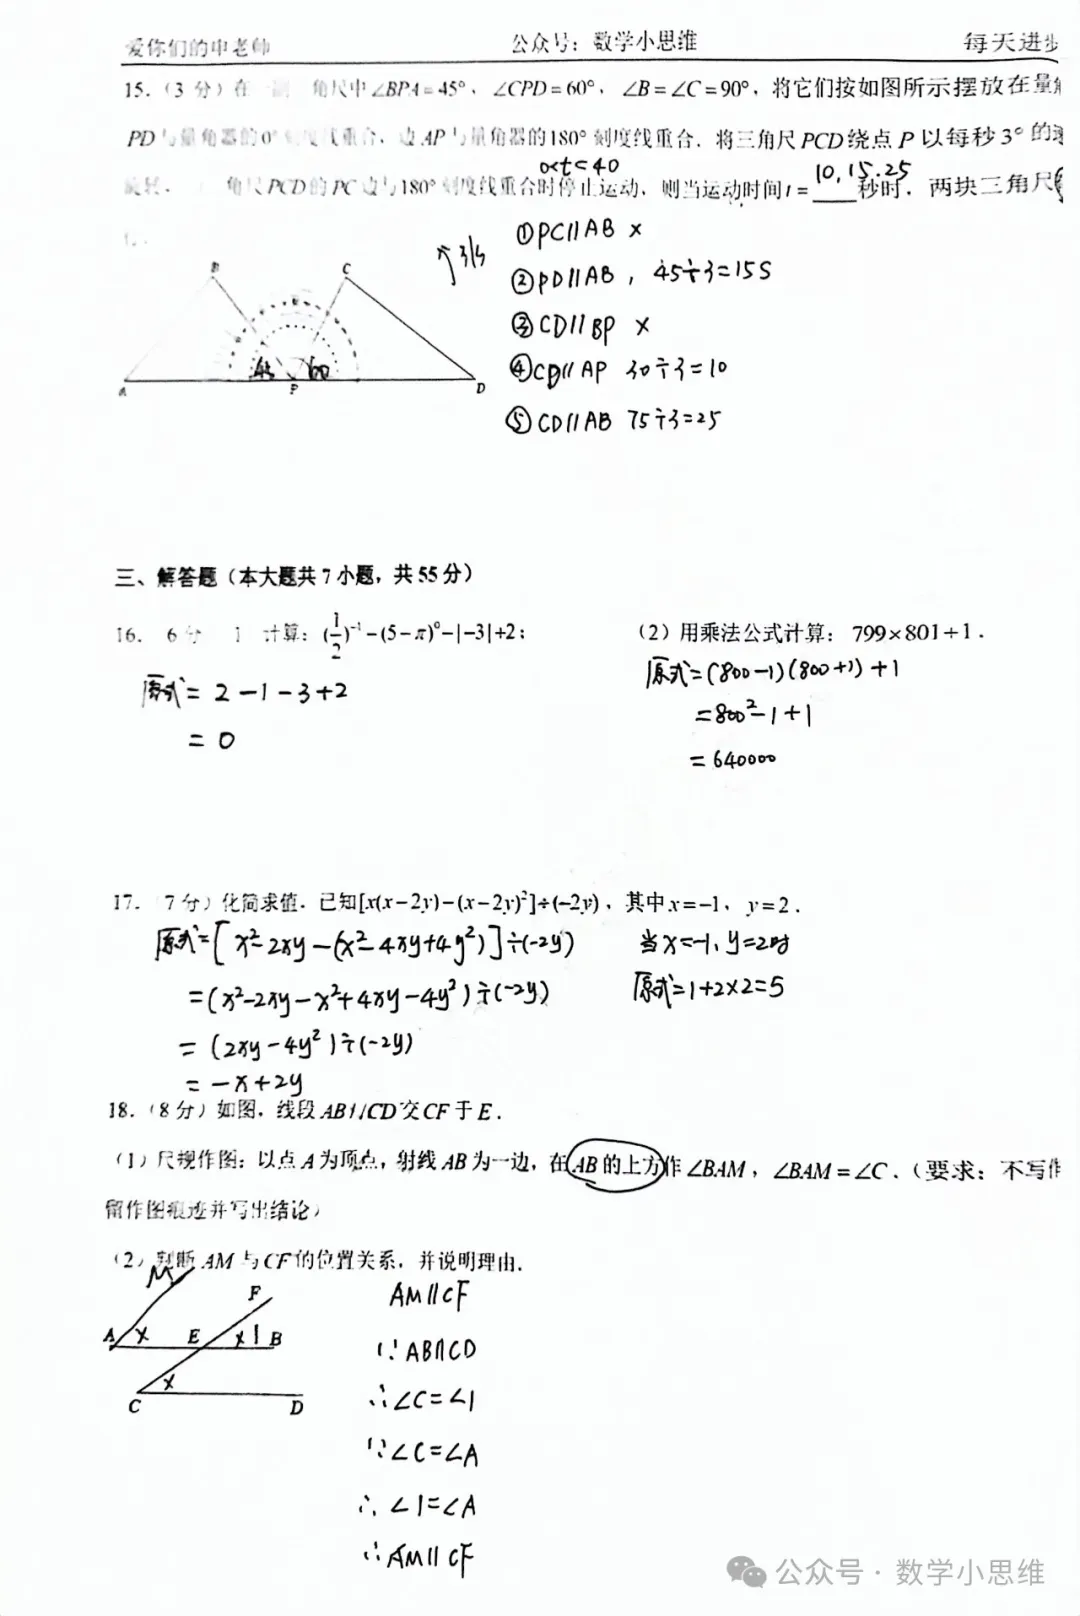 爱你们的申老师 公众号：数学小思维 每天进步
15.（3 分）在 角尺中∠BPA=45°，∠CPD=60°，∠B=∠C=90°，将它们按如图所示摆放在量
PD与量角器的0°刻度线重合，边AP与量角器的180°刻度线重合．将三角尺PCD绕点P以每秒3°的速
0<t<40
旋转， 角尺PCD的PC边与180°刻度线重合时停止运动，则当运动时间t= 10,15,25 秒时．两块三角尺
①PC∥AB ×
3/s
②PD∥AB，45÷3=15S
③CD∥BP ×
④CD∥AP 30÷3=10
⑤CD∥AB 75÷3=25
B C
45 60
A P D
三、解答题（本大题共7小题，共55分）
16. 6分 1 计算：(1/2)⁻¹-(5-π)⁰-|-3|+2； （2）用乘法公式计算：799×801+1．
原式=2-1-3+2
=0
原式=(800-1)(800+1)+1
=800²-1+1
=640000
17.（7分）化简求值．已知[x(x-2y)-(x-2y)²]÷(-2y)，其中x=-1，y=2．
原式=[x²-2xy-(x²-4xy+4y²)]÷(-2y) 当x=-1,y=2时
=(x²-2xy-x²+4xy-4y²)÷(-2y) 原式=1+2×2=5
=(2xy-4y²)÷(-2y)
=-x+2y
18.（8分）如图，线段AB∥CD交CF于E．
（1）尺规作图：以点A为顶点，射线AB为一边，在AB的上方作∠BAM，∠BAM=∠C．（要求：不写作
留作图痕迹并写出结论）
（2）判断AM与CF的位置关系，并说明理由．
M F
A × E × 1 B
C × D
AM∥CF
∵AB∥CD
∴∠C=∠1
∵∠C=∠A
∴∠1=∠A
∴AM∥CF
公众号·数学小思维